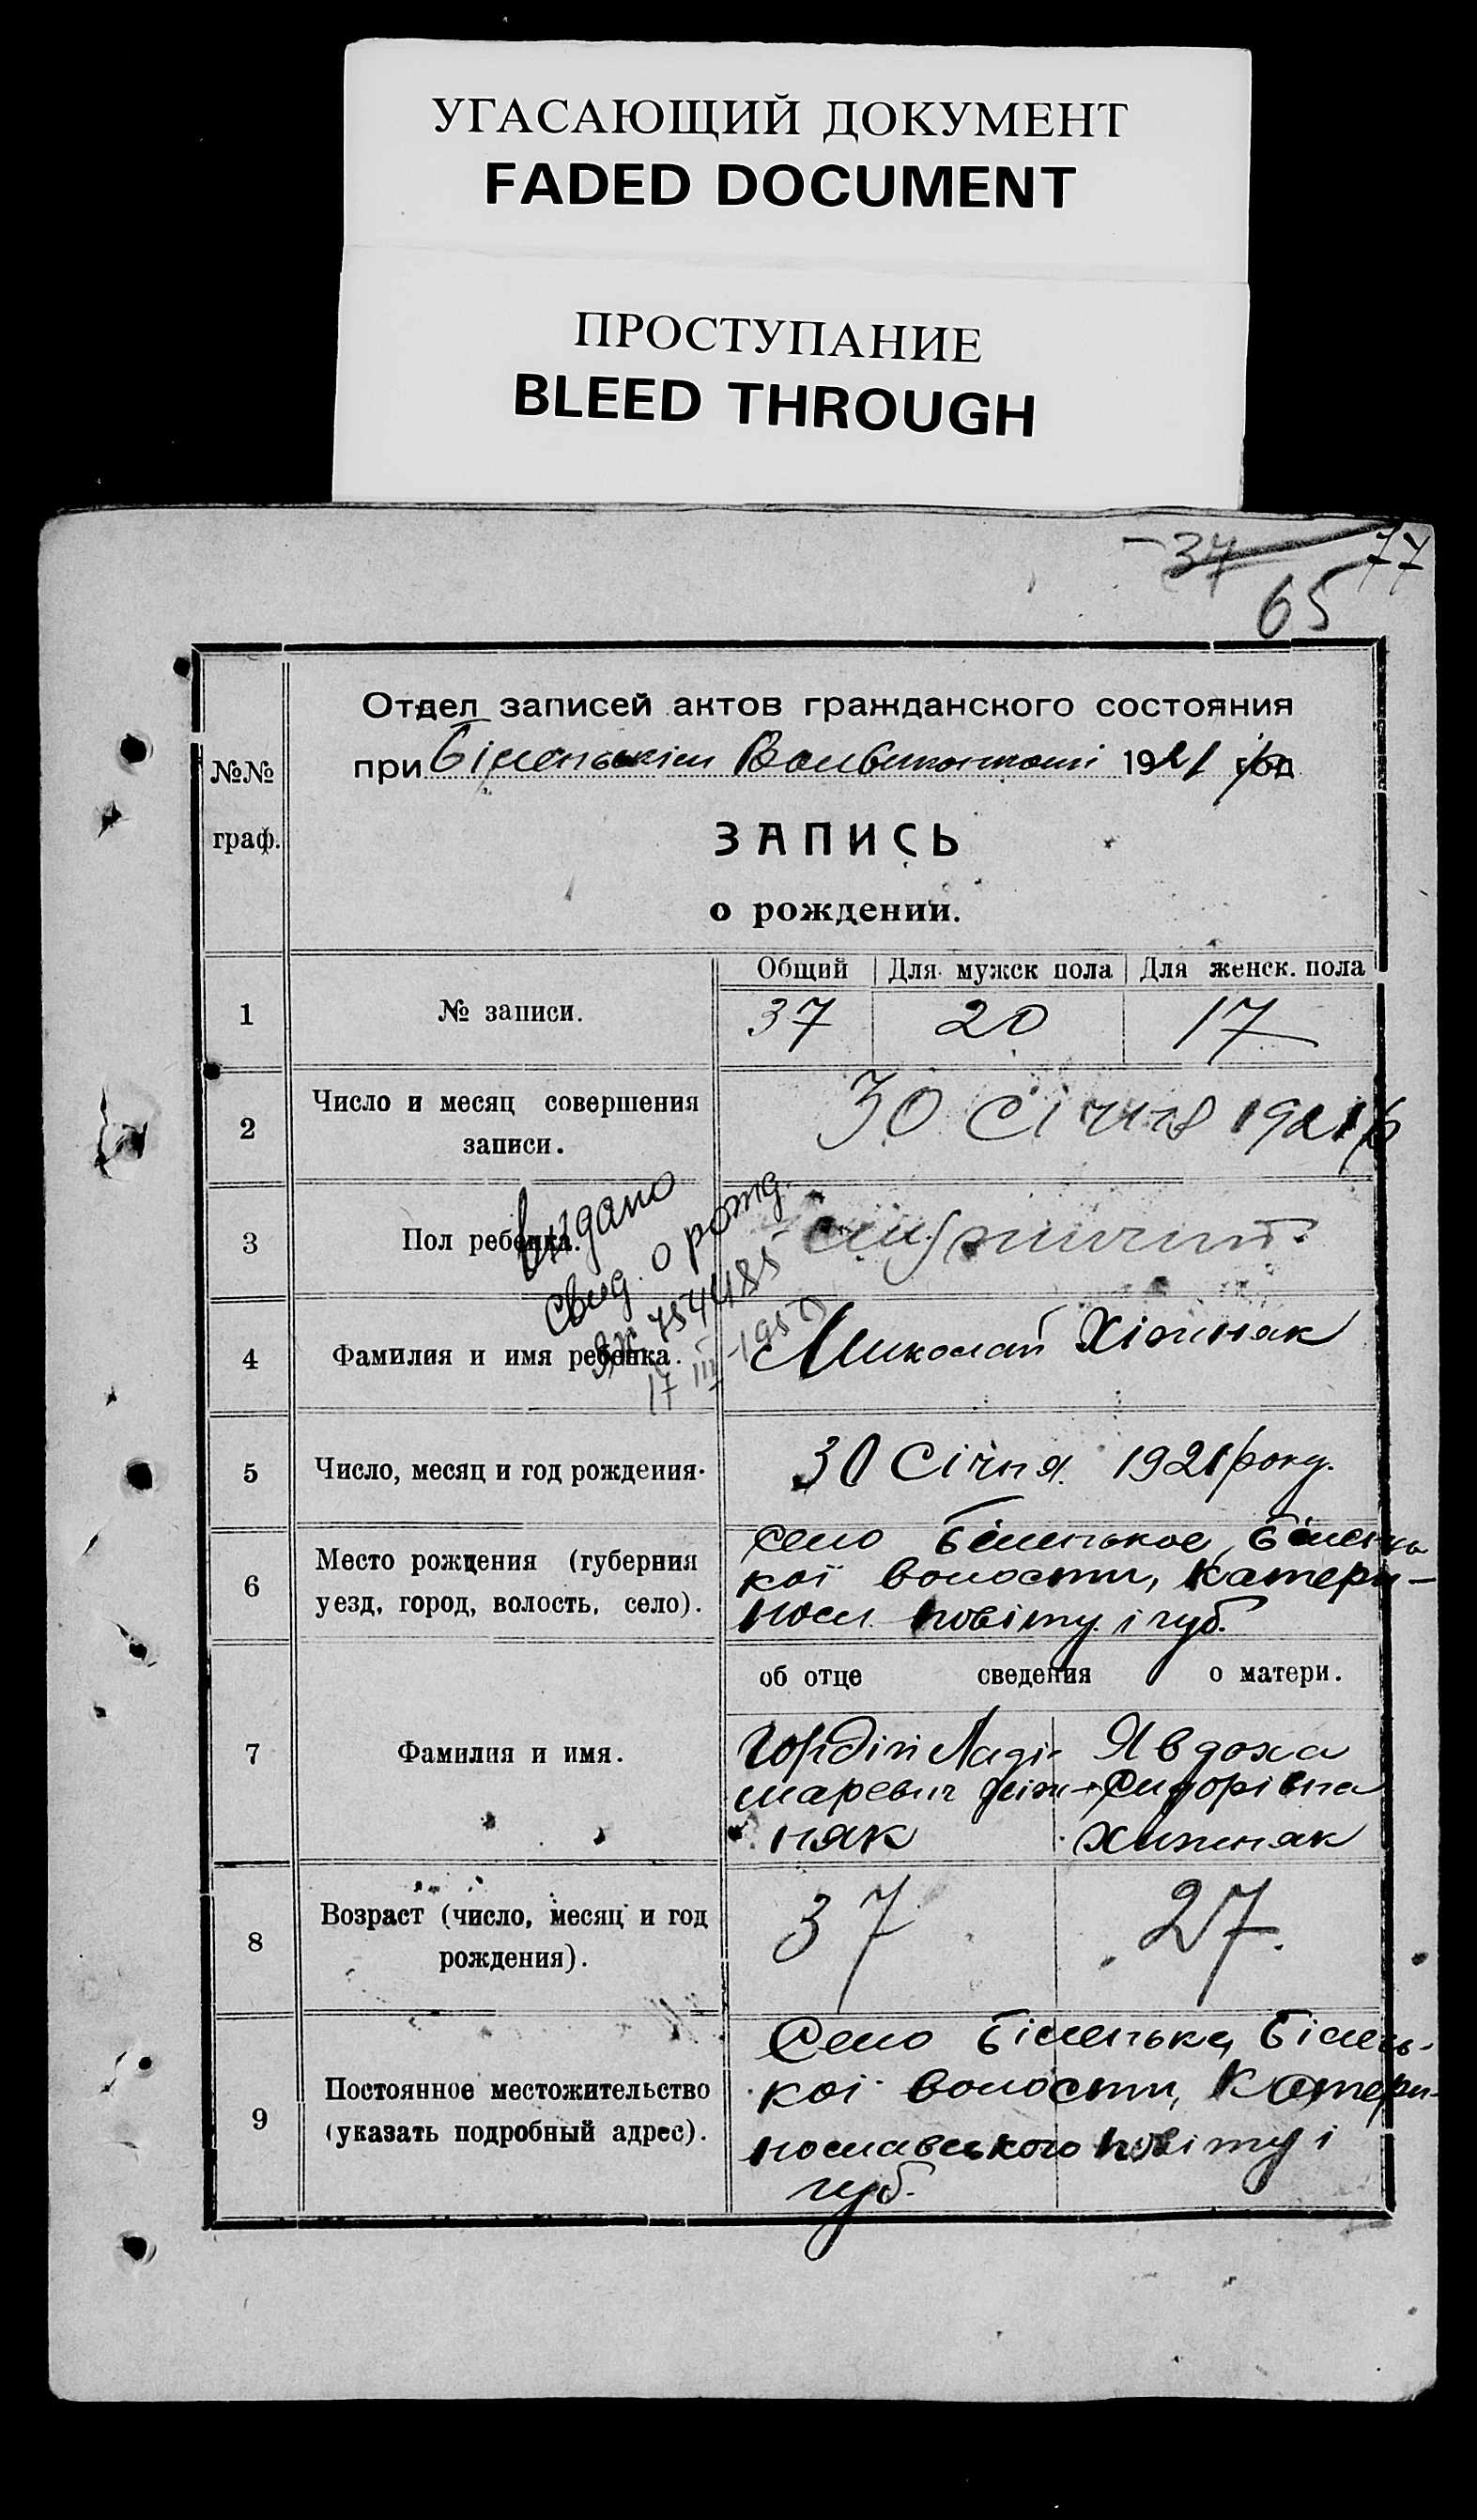 УГАСАЮЩИЙ ДОКУМЕНТ
FADED DOCUMENT
ПРОСТУПАНИЕ
BLEED THROUGH
37 77
65
Отдел записей актов гражданского состояния
№№ при 1921 год
граф.
ЗАПИСЬ
о рождении.
Общий Для мужск пола Для женск. пола
1 № записи. 37 20 17
2 Число и месяц совершения записи. 30 Січня 1921 р
3 Пол ребенка.
Видано
свид. о рожд.
17 III
4 Фамилия и имя ребенка. Миколай Хіжняк
5 Число, месяц и год рождения. 30 Січня 1921 року.
6 Место рождения (губерния
уезд, город, волость, село).
село Біленькое, Білень
кої волости, Катери-
носл. повіту і губ.
об отце сведения о матери.
7 Фамилия и имя.
Гордій Явдоха
Сидорівна
няк Хижняк
8 Возраст (число, месяц и год
рождения).
37 27.
9 Постоянное местожительство
(указать подробный адрес).
Село Біленьке, Білень-
кої волости, Катери-
нославського повіту і
губ.